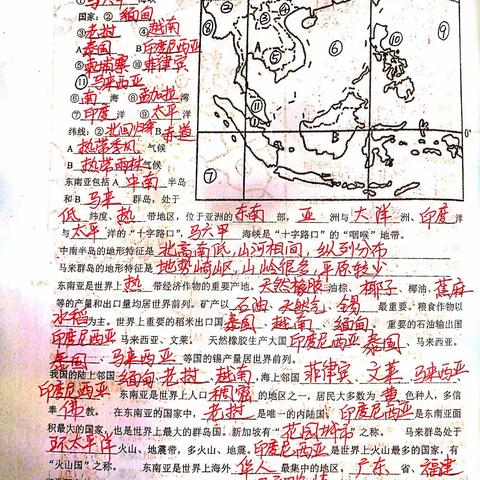 ①马六甲 海峡
国家:②缅甸
③老挝 ④越南
A泰国 B印度尼西亚
⑤柬埔寨 ⑩菲律宾
⑪马来西亚
⑥南 海 ⑧孟加拉 湾
⑦印度 洋 ⑨太平 洋
纬线:②北回归线 B赤道
A 热带季风 气候
B 热带雨林 气候
东南亚包括 A 中南 半岛
和 B 马来 群岛,处于
低 纬度、热 带地区,位于亚洲的 东南 部,亚 洲与 大洋 洲、印度 洋
与 太平 洋的“十字路口”,马六甲 海峡是“十字路口”的“咽喉”地带。
中南半岛的地形特征是 北高南低,山河相间,纵列分布
马来群岛的地形特征是 地势崎岖,山岭很多,平原较少
东南亚是世界上 热 带经济作物的重要产地。天然橡胶 油棕、椰子、椰油、蕉麻
等的产量和出口量均居世界前列。矿产以 石油、天然气、锡 最重要。粮食作物以
水稻 为主。世界上重要的稻米出口国 泰国、越南、缅甸,重要的石油输出国
印度尼西亚 马来西亚、文莱。 天然橡胶生产大国 印度尼西亚 泰国、马来西亚。
泰国、马来西亚 等国的锡产量居世界前列。
我国的陆上邻国 缅甸 老挝、越南,海上邻国 菲律宾、文莱、马来西亚、
印度尼西亚 东南亚是世界上人口 稠密 的地区之一,居民大多数为 黄 色种人,多信
奉 佛 教。 在东南亚的国家中,老挝 是唯一的内陆国、印度尼西亚 是东南亚面
积最大的国家,也是世界上最大的群岛国。新加坡有“花园城市”之称。 马来群岛处于
环太平洋 火山、地震带,多火山、地震。印度尼西亚 是世界上火山最多的国家,有
“火山国”之称。 东南亚是世界上海外 华人 最集中的地区。广东 省、福建
A
B
②
③
⑤
⑥
⑦
⑨
⑪
0°